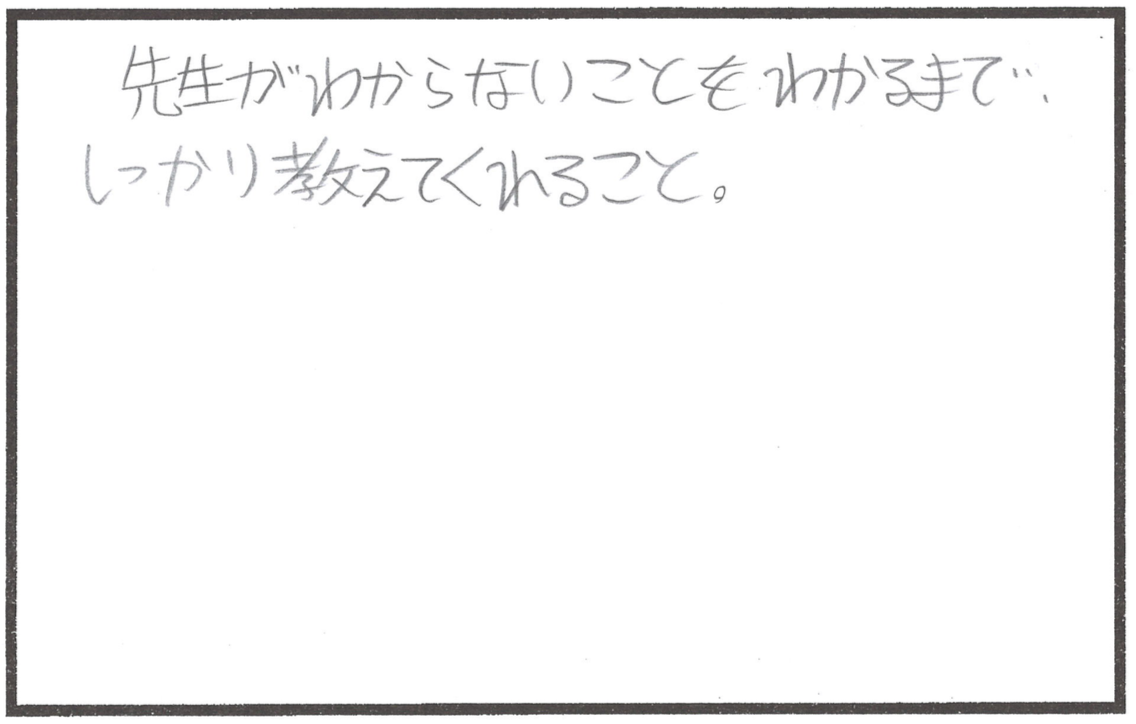 先生がわからないことをわかるまで、
しっかり教えてくれること。